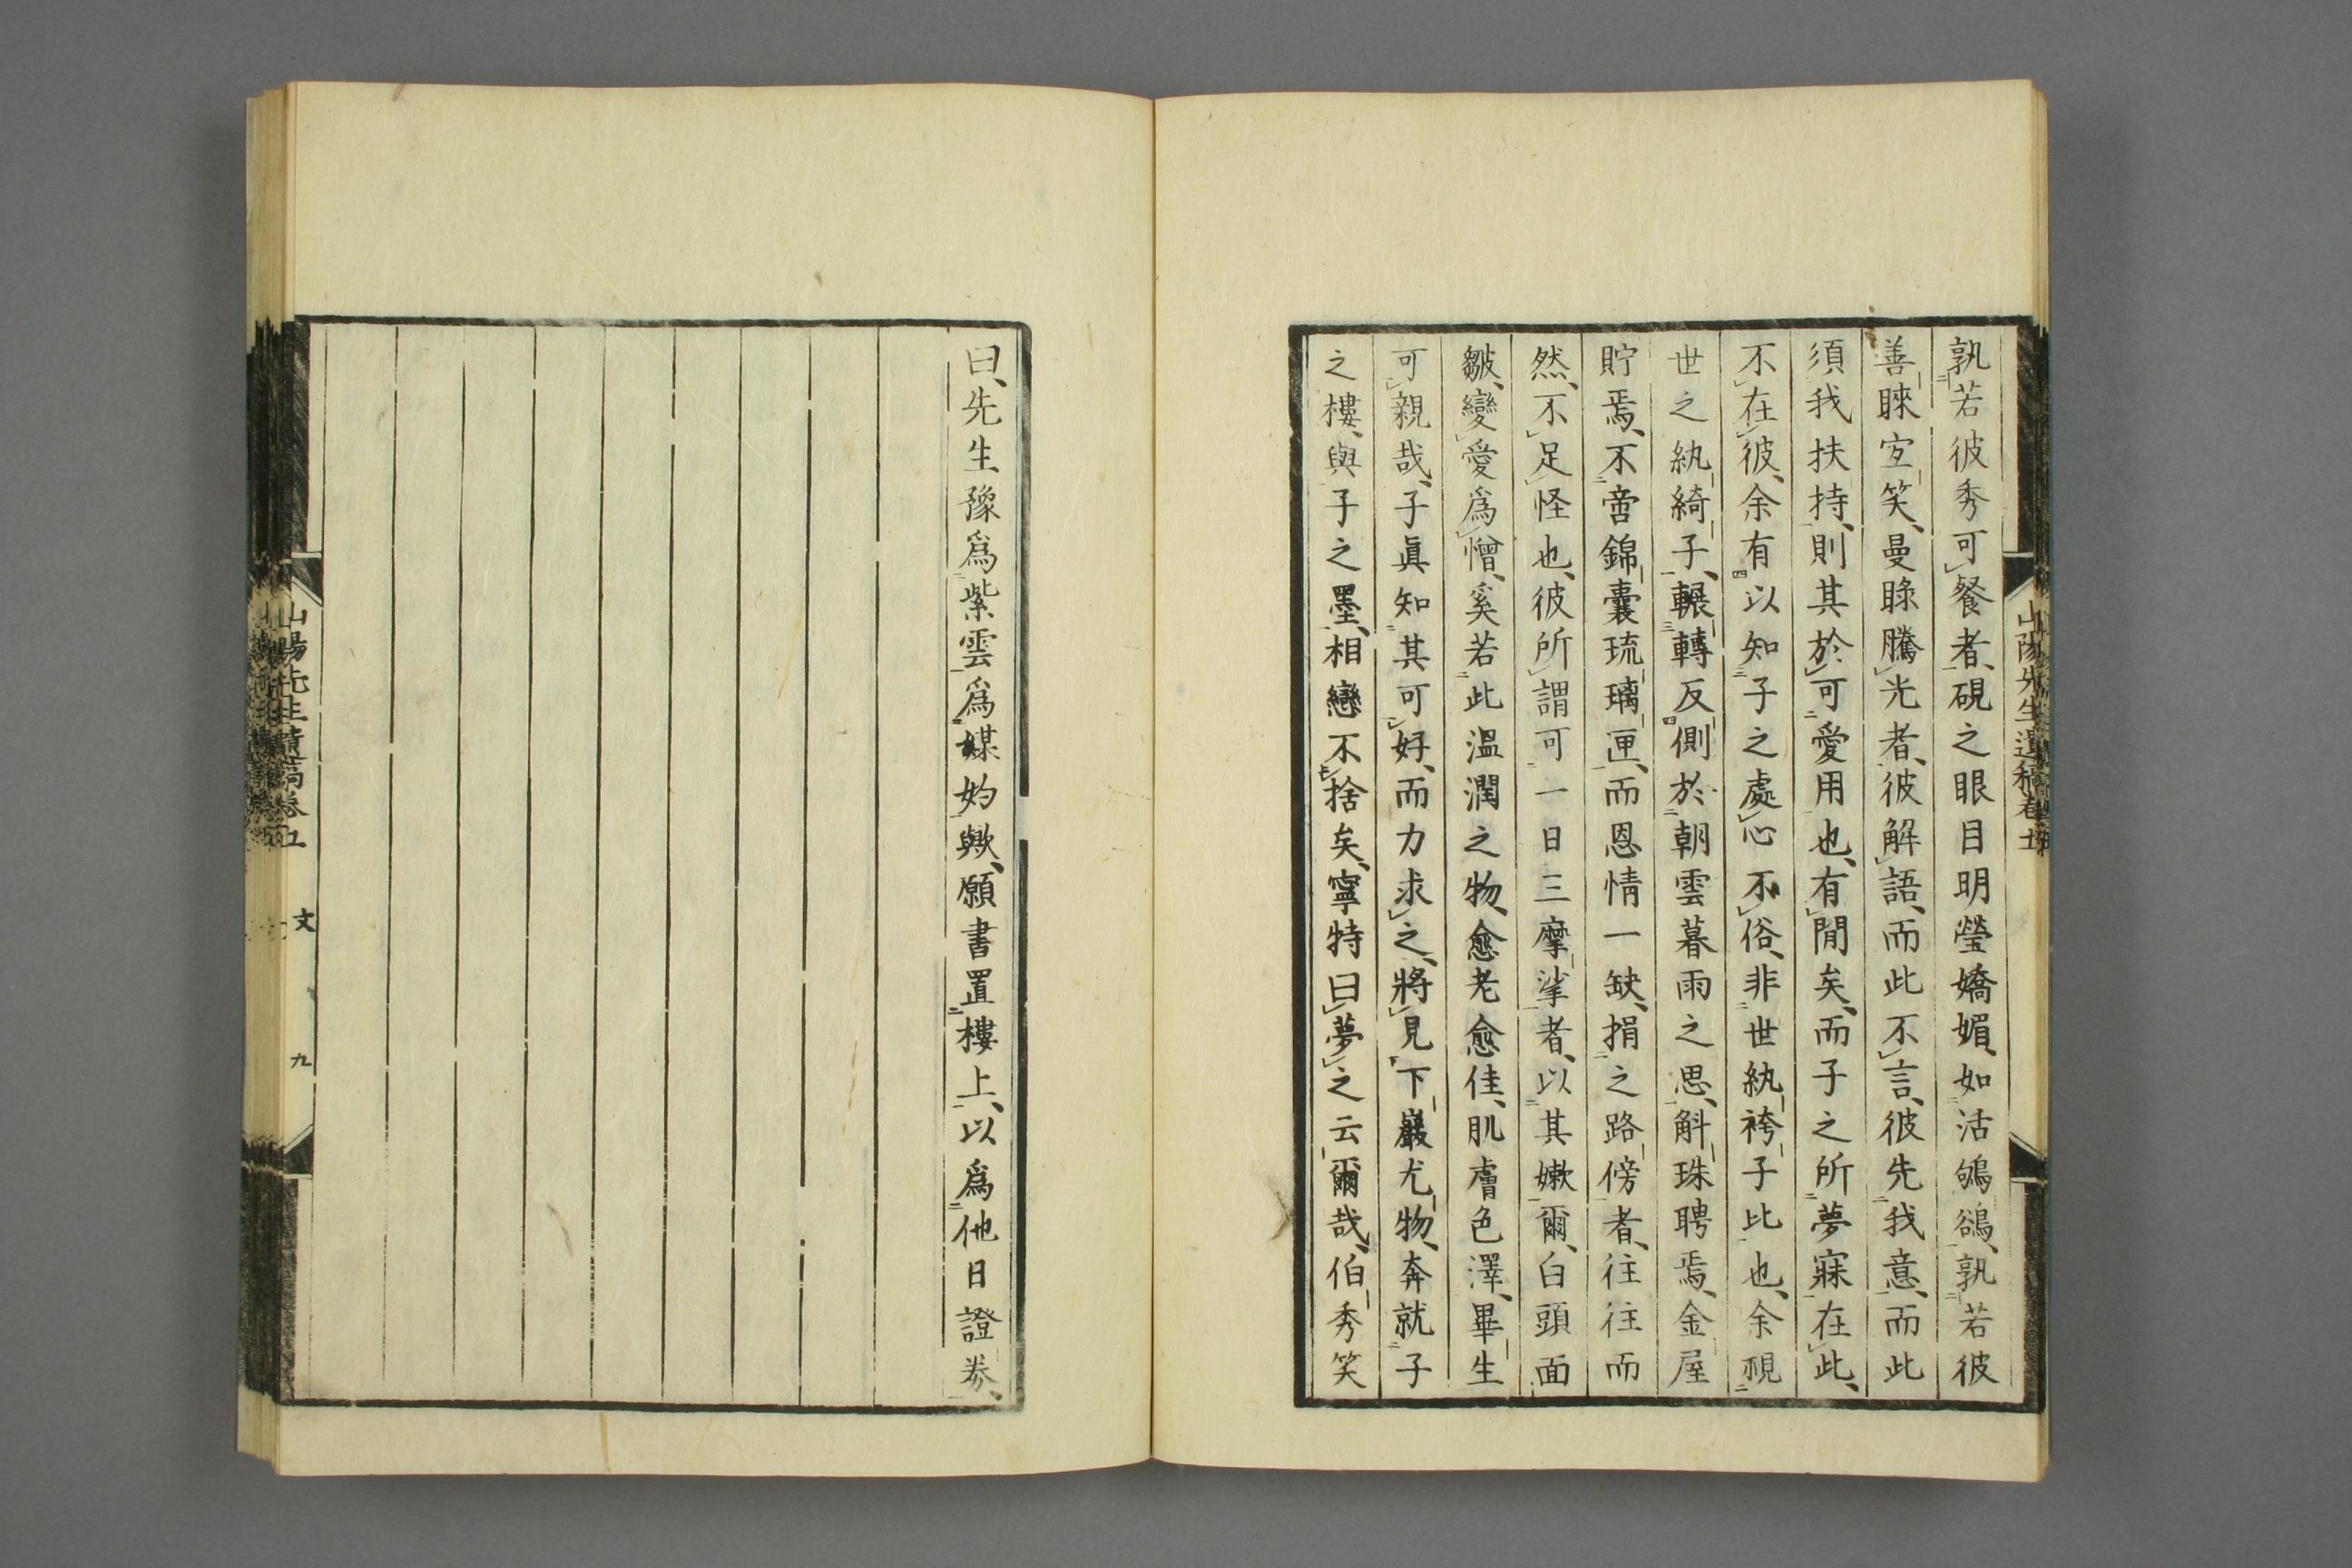 孰若彼秀可餐者、硯之眼目明瑩嬌媚、如活鴝鵒、孰若彼
善睞宜笑、曼睩騰光者、彼解語、而此不言、彼先我意、而此
須我扶持、則其於可愛用也、有閒矣、而子之所夢寐在此、
不在彼、余有以知子之處心不俗、非世紈袴子比也、余視
世之紈綺子、輾轉反側於朝雲暮雨之思、斛珠聘焉、金屋
貯焉、不啻錦囊琉璃匣、而恩情一缺、捐之路傍者、往往而
然、不足怪也、彼所謂可一日三摩挲者、以其嫩爾、白頭面
皺、變愛爲憎、奚若此溫潤之物、愈老愈佳、肌膚色澤、畢生
可親哉、子眞知其可好、而力求之、將見下巖尤物、奔就子
之樓、與子之墨、相戀不捨矣、寧特曰夢之云爾哉、伯秀笑
曰、先生豫爲紫雲爲媒妁歟、願書置樓上、以爲他日證券、
山陽先生遺稿卷五
文
九